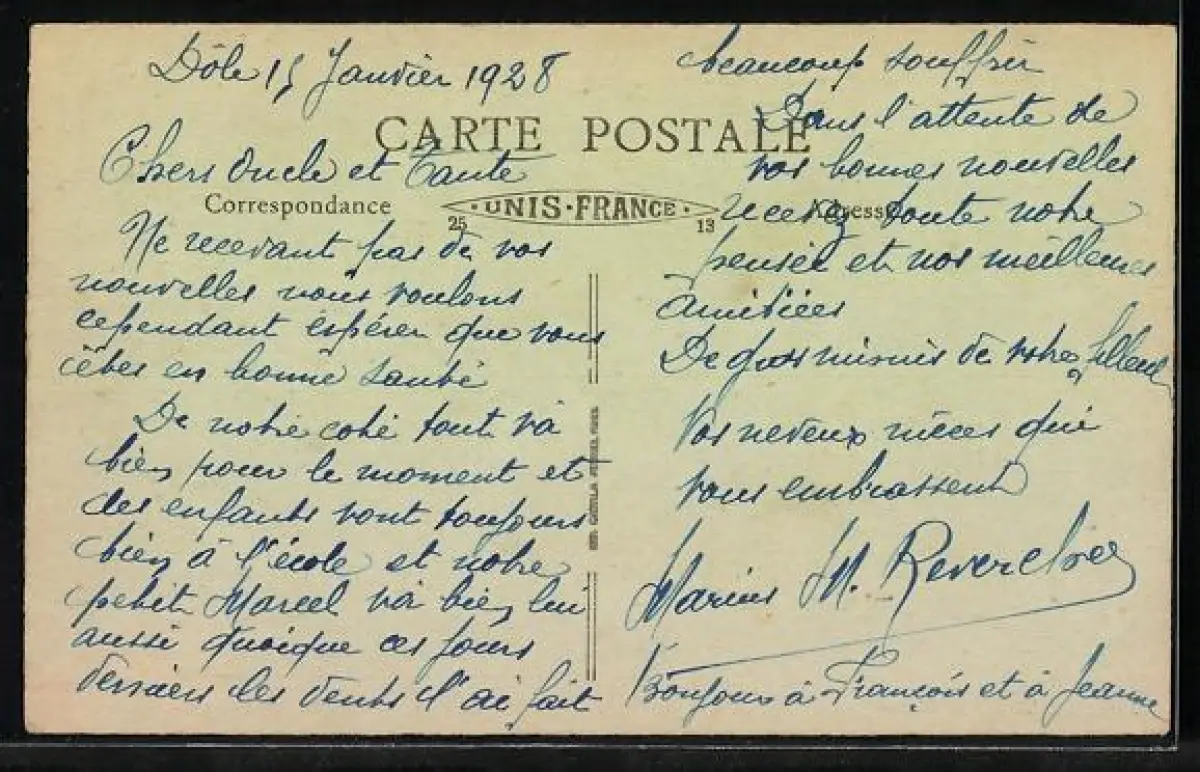 Dôle 15 Janvier 1928
CARTE POSTALE
Chers Oncle et Tante
Correspondance
UNIS-FRANCE
25
13
Ne recevant pas de vos
nouvelles nous voulons
cependant espérer que vous
êtes en bonne santé
De notre coté tout và
bien pour le moment et
les enfants vont toujours
bien à l'école et notre
petit Marcel và bien lui
aussi quoique ces jours
derniers les dents l'ai fait
beaucoup souffrir
Dans l'attente de
vos bonnes nouvelles
Adresse
recevez toute notre
pensée et nos meilleures
amitiées
De gros mimis de votre filleul
Vos neveux nièces qui
vous embrassent
Marius M. Reverchon
Bonjour à François et à Jeanne